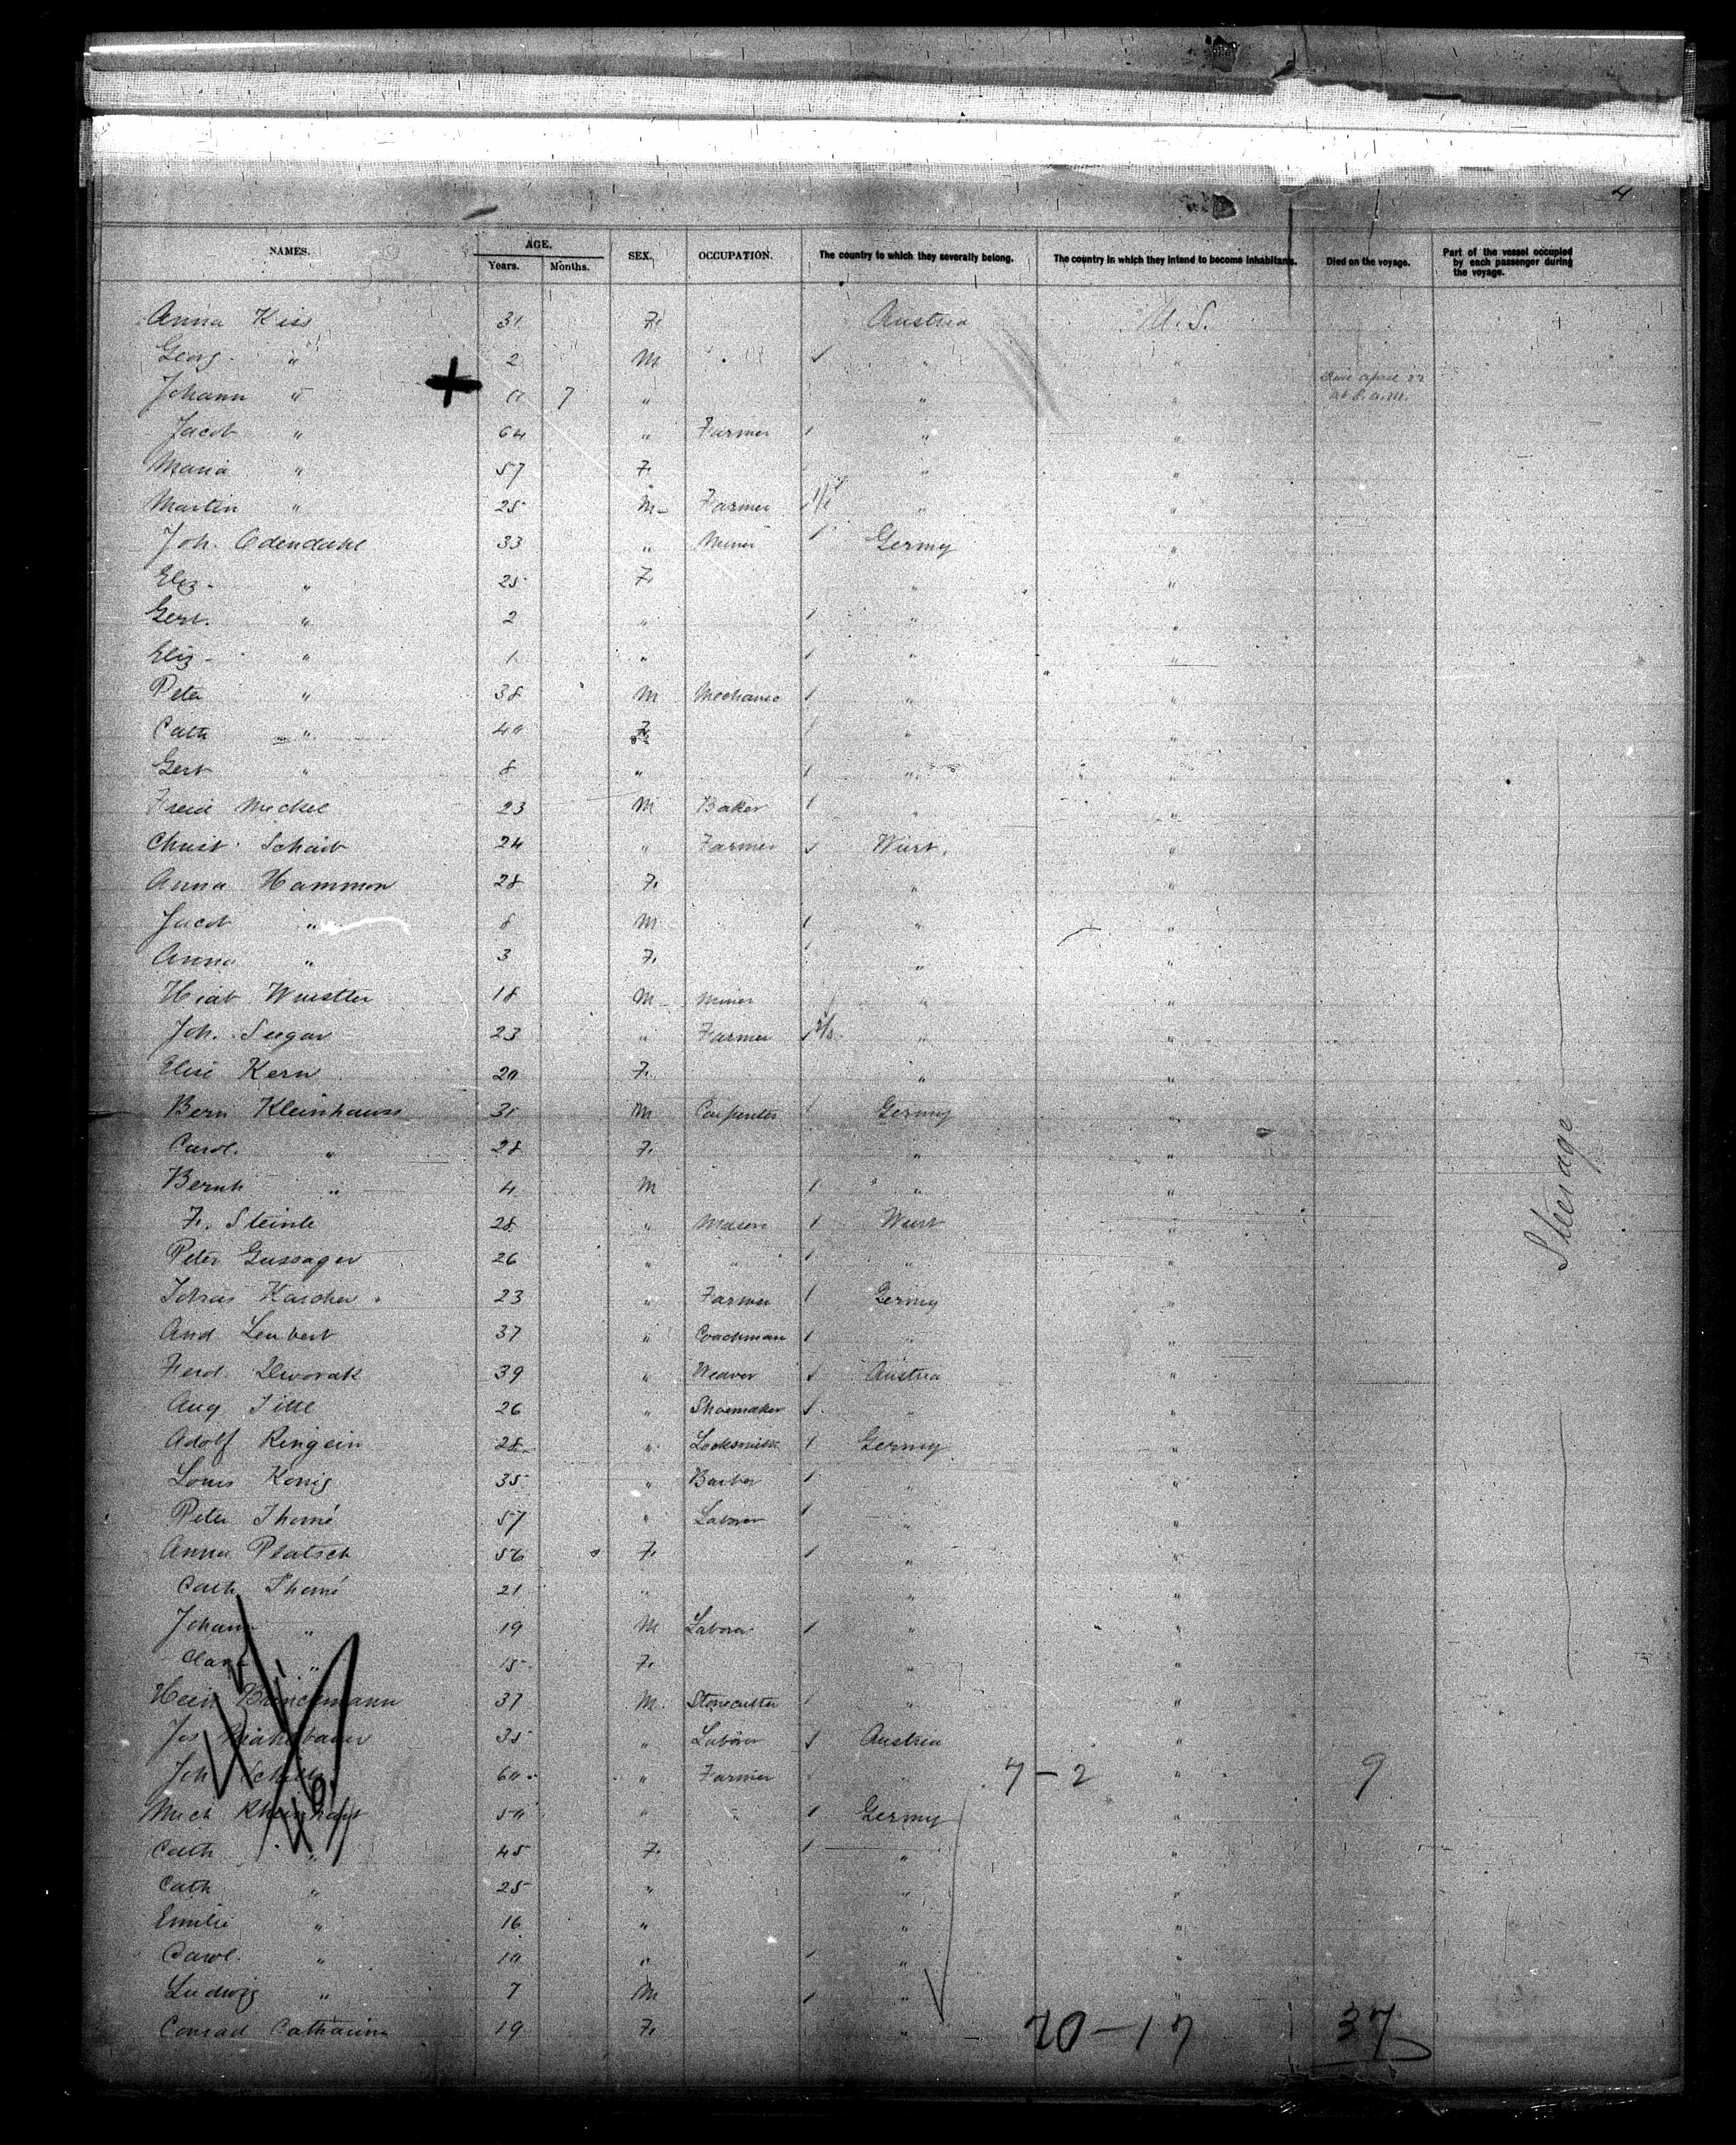 4
NAMES. AGE. Years. Months. SEX. OCCUPATION. The country to which they severally belong. The country in which they intend to become inhabitants. Died on the voyage. Part of the vessel occupied by each passenger during the voyage.
Anna Kiss 31 F. Austria U.S.
Georg " 2 M " "
Johann " 0 7 " " " Died April 22 at 8 a.m.
Jacob " 64 " Farmer " "
Maria " 57 F. " "
Martin " 25 M Farmer " "
Joh. Odendahl 33 " Miner Germy "
Eliz. " 25 F. " "
Gert. " 2 " " "
Eliz. " 1 " " "
Peter " 38 M Mechanic " "
Cath " 40 F. " "
Gert " 8 " " "
Meckel 23 M Baker " "
Christ. Schaib 24 " Farmer Wurt. "
Anna Hammon 28 F. " "
Jacob " 8 M " "
Anna " 3 F. " "
Wurster 18 M Miner " "
Joh. Seegar 23 " Farmer " "
Elise Kern 20 F. " "
Bern Kleinhauss 31 M Carpenter Germy "
Carol. " 28 F. " "
Bernh " 4 M " "
F. Steinle 28 " Mason Wurt "
Peter Gussager 26 " " " "
23 " Farmer Germy "
And Leubert 37 " Coachman " "
Ferd. Dworak 39 " Weaver Austria "
Aug Tille 26 " Shoemaker " "
Adolf Ringein 28 " Locksmith Germy "
Louis Konig 35 " Barber " "
Peter Thomé 57 " Laborer " "
Anna Platsch 56 F. " "
Cath Thomé 21 " " "
Johann " 19 M Laborer " "
Clara " 15 F. " "
Hein Brinckmann 37 M. Stonecutter " "
Jos 35 " Laborer Austria "
Joh 60 " Farmer " 7-2 " 9
Mich Rheinhart 50 " " Germy "
Cath " 45 F. " "
Cath " 25 " " "
Emilie " 16 " " "
Carol. " 10 " " "
Ludwig " 7 M " "
Conrad Catharina 19 F. " 20-17 37
Steerage